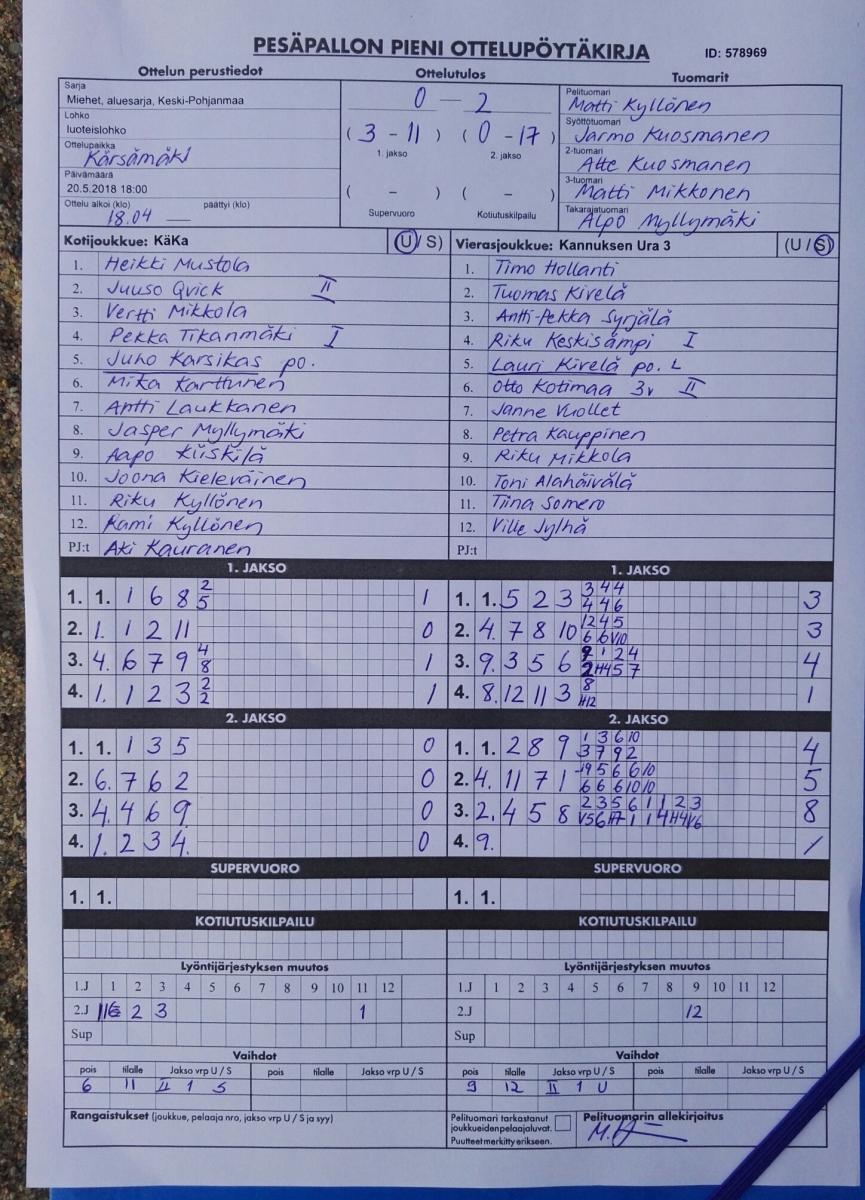 PESÄPALLON PIENI OTTELUPÖYTÄKIRJA ID: 578969
Ottelun perustiedot Ottelutulos Tuomarit
Sarja
Miehet, aluesarja, Keski-Pohjanmaa
Lohko
luoteislohko
Ottelupaikka
Kärsämäki
Päivämäärä
20.5.2018 18:00
Ottelu alkoi (klo) päättyi (klo)
18.04 —
0 — 2
( 3 - 11 ) ( 0 - 17 )
1. jakso 2. jakso
( - ) ( - )
Supervuoro Kotiutuskilpailu
Pelituomari
Matti Kyllönen
Syöttötuomari
Jarmo Kuosmanen
2-tuomari
Atte Kuosmanen
3-tuomari
Matti Mikkonen
Takarajatuomari
Alpo Myllymäki
Kotijoukkue: KäKa (U / S)
1. Heikki Mustola
2. Juuso Qvick II
3. Vertti Mikkola
4. Pekka Tikanmäki I
5. Juho Karsikas po.
6. Mika Karttunen
7. Antti Laukkanen
8. Jasper Myllymäki
9. Aapo Kiiskilä
10. Joona Kieleväinen
11. Riku Kyllönen
12. Rami Kyllönen
PJ:t Aki Kauranen
Vierasjoukkue: Kannuksen Ura 3 (U / S)
1. Timo Hollanti
2. Tuomas Kivelä
3. Antti-Pekka Syrjälä
4. Riku Keskisämpi I
5. Lauri Kivelä po. L
6. Otto Kotimaa 3v II
7. Janne Vuollet
8. Petra Kauppinen
9. Riku Mikkola
10. Toni Alahäivälä
11. Tiina Somero
12. Ville Jylhä
PJ:t
1. JAKSO
1. 1. 1 6 8 2 5 1
2. 1. 1 2 11 0
3. 4. 6 7 9 4 8 1
4. 1. 1 2 3 2 2 1
1. JAKSO
1. 1. 5 2 3 3 4 4 4 4 6 3
2. 4. 7 8 10 12 4 5 6 6 V10 3
3. 9. 3 5 6 1 2 4 2 H4 5 7 4
4. 8. 12 11 3 8 H12 1
2. JAKSO
1. 1. 1 3 5 0
2. 6. 7 6 2 0
3. 4. 4 6 9 0
4. 1. 2 3 4. 0
2. JAKSO
1. 1. 2 8 9 1 3 6 10 3 7 9 2 4
2. 4. 11 7 1 5 6 6 10 6 6 6 10 10 5
3. 2. 4 5 8 2 3 5 6 1 1 2 3 V5 6 H7 1 1 4 H4 V6 8
4. 9. /
SUPERVUORO
1. 1.
SUPERVUORO
1. 1.
KOTIUTUSKILPAILU
KOTIUTUSKILPAILU
Lyöntijärjestyksen muutos
1.J 1 2 3 4 5 6 7 8 9 10 11 12
2.J 2 3 1
Sup
Lyöntijärjestyksen muutos
1.J 1 2 3 4 5 6 7 8 9 10 11 12
2.J 12
Sup
Vaihdot
pois tilalle Jakso vrp U / S pois tilalle Jakso vrp U / S
6 11 II 1 S
Vaihdot
pois tilalle Jakso vrp U / S pois tilalle Jakso vrp U / S
9 12 II 1 U
Rangaistukset (joukkue, pelaaja nro, jakso vrp U / S ja syy)
Pelituomari tarkastanut
joukkueiden pelaajaluvat.
Puutteet merkitty erikseen.
Pelituomarin allekirjoitus